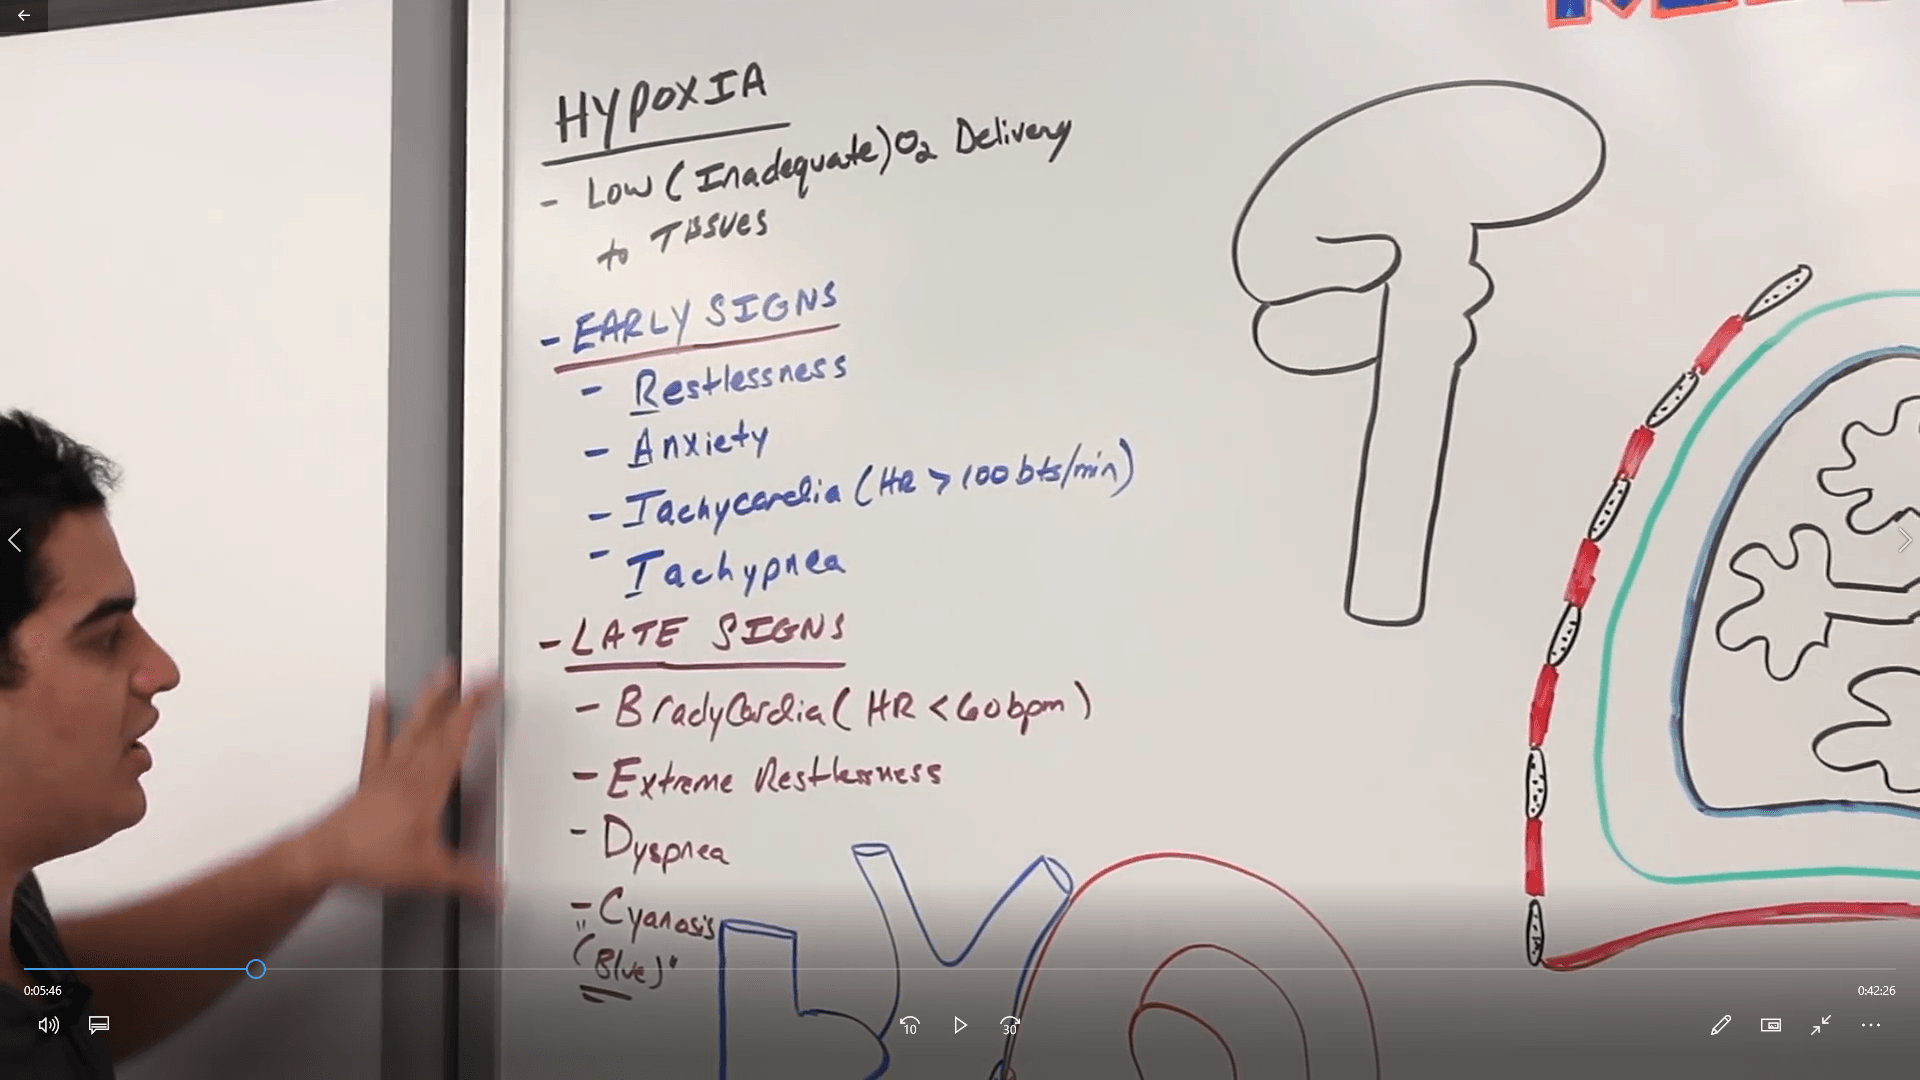 HYPOXIA
- Low (Inadequate) O2 Delivery
to Tissues
- EARLY SIGNS
- Restlessness
- Anxiety
- Tachycardia (HR > 100 bts/min)
- Tachypnea
- LATE SIGNS
- BradyCardia (HR < 60bpm)
- Extreme Restlessness
- Dyspnea
- Cyanosis
"(Blue)"
0:05:46
0:42:26
10
30